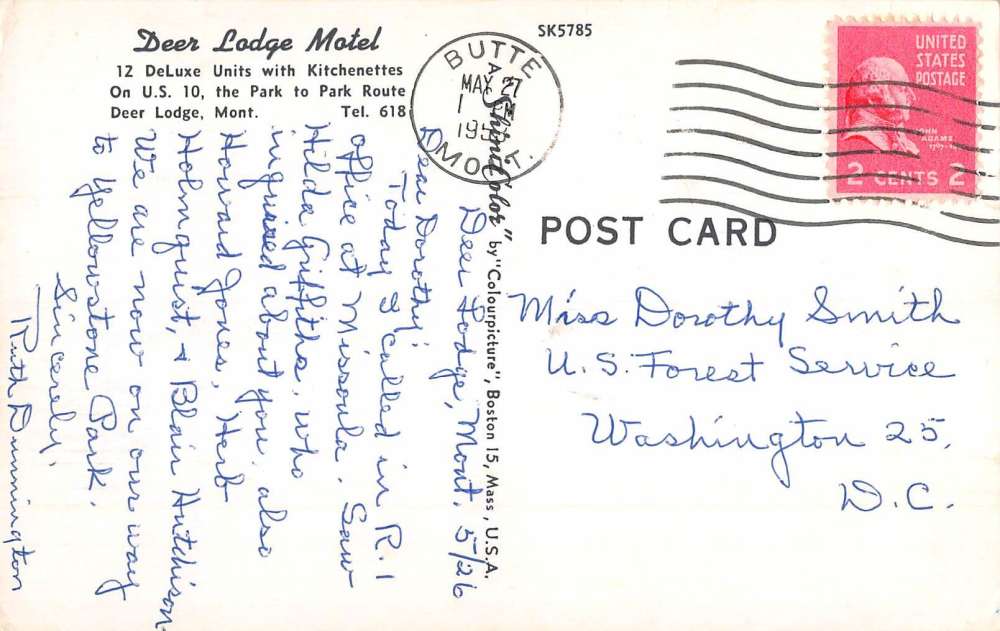 Deer Lodge Motel
12 DeLuxe Units with Kitchenettes
On U.S. 10, the Park to Park Route
Deer Lodge, Mont. Tel. 618
SK5785
BUTTE
MAY 27
1
MONT.
UNITED
STATES
POSTAGE
JOHN
ADAMS
2 CENTS 2
POST CARD
"ShiniColor" by "Colourpicture", Boston 15, Mass., U.S.A.
Deer Lodge, Mont. 5/26
Dear Dorothy:
Today I called in R. 1
office at Missoula. Saw
Hilda Griffiths, who
inquired about you. also
Howard Jones, Herb
Holmquist, & Blair Hutchison.
We are now on our way
to Yellowstone Park.
Sincerely,
Ruth Dunnington
Miss Dorothy Smith
U.S. Forest Service
Washington 25,
D.C.